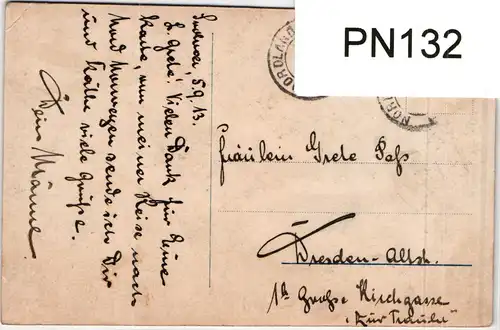 PN132
NORDLAND
5.9.13.
L. Grete! Vielen Dank für Deine
Karte, von meiner Reise nach
Nord Norwegen sende ich Dir
und Käthe viele Grüße.
Dein Männe.
Fräulein Grete
Dresden-Altst.
1a Große Kirchgasse
"Zur Traube"